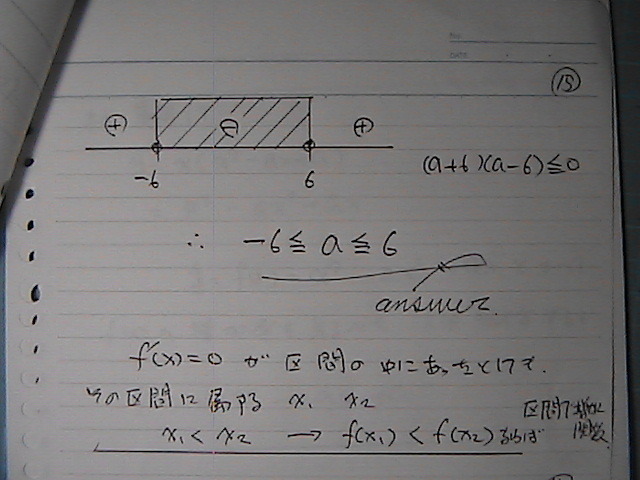 NO.
DATE
⑮
⊕ ⊖ ⊕
-6 6
(a+6)(a-6)≦0
∴ -6≦a≦6
answer.
f'(x)=0 が 区間の中にあったとしても、
その区間に属する x₁ x₂
x₁<x₂ → f(x₁)<f(x₂) ならば
区間で
関数